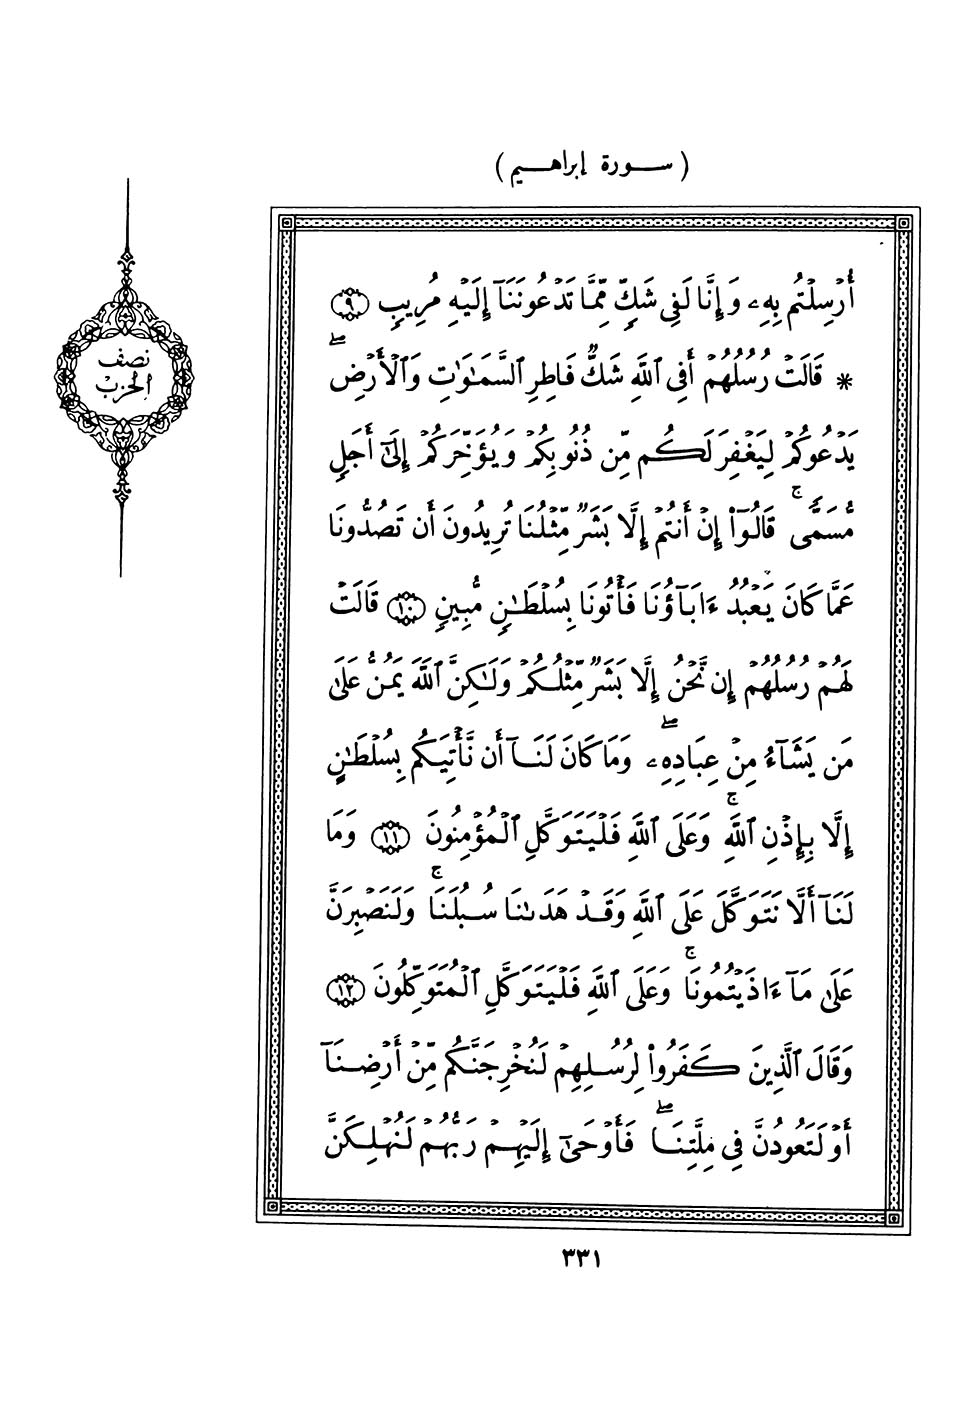 ( ســورة إبراهـيم )
أُرْسِلْتُم بِهِۦ وَإِنَّا لَفِى شَكٍّ مِّمَّا تَدْعُونَنَآ إِلَيْهِ مُرِيبٍ ۝٩
* قَالَتْ رُسُلُهُمْ أَفِى ٱللَّهِ شَكٌّ فَاطِرِ ٱلسَّمَـٰوَٰتِ وَٱلْأَرْضِۖ
يَدْعُوكُمْ لِيَغْفِرَ لَكُم مِّن ذُنُوبِكُمْ وَيُؤَخِّرَكُمْ إِلَىٰٓ أَجَلٍ
مُّسَمًّىۚ قَالُوٓا۟ إِنْ أَنتُمْ إِلَّا بَشَرٌ مِّثْلُنَا تُرِيدُونَ أَن تَصُدُّونَا
عَمَّا كَانَ يَعْبُدُ ءَابَآؤُنَا فَأْتُونَا بِسُلْطَـٰنٍ مُّبِينٍ ۝١٠ قَالَتْ
لَهُمْ رُسُلُهُمْ إِن نَّحْنُ إِلَّا بَشَرٌ مِّثْلُكُمْ وَلَـٰكِنَّ ٱللَّهَ يَمُنُّ عَلَىٰ
مَن يَشَآءُ مِنْ عِبَادِهِۦۖ وَمَا كَانَ لَنَآ أَن نَّأْتِيَكُم بِسُلْطَـٰنٍ
إِلَّا بِإِذْنِ ٱللَّهِۚ وَعَلَى ٱللَّهِ فَلْيَتَوَكَّلِ ٱلْمُؤْمِنُونَ ۝١١ وَمَا
لَنَآ أَلَّا نَتَوَكَّلَ عَلَى ٱللَّهِ وَقَدْ هَدَىٰنَا سُبُلَنَاۚ وَلَنَصْبِرَنَّ
عَلَىٰ مَآ ءَاذَيْتُمُونَاۚ وَعَلَى ٱللَّهِ فَلْيَتَوَكَّلِ ٱلْمُتَوَكِّلُونَ ۝١٢
وَقَالَ ٱلَّذِينَ كَفَرُوا۟ لِرُسُلِهِمْ لَنُخْرِجَنَّكُم مِّنْ أَرْضِنَآ
أَوْ لَتَعُودُنَّ فِى مِلَّتِنَاۖ فَأَوْحَىٰٓ إِلَيْهِمْ رَبُّهُمْ لَنُهْلِكَنَّ
نصف
الحزب
٣٣١